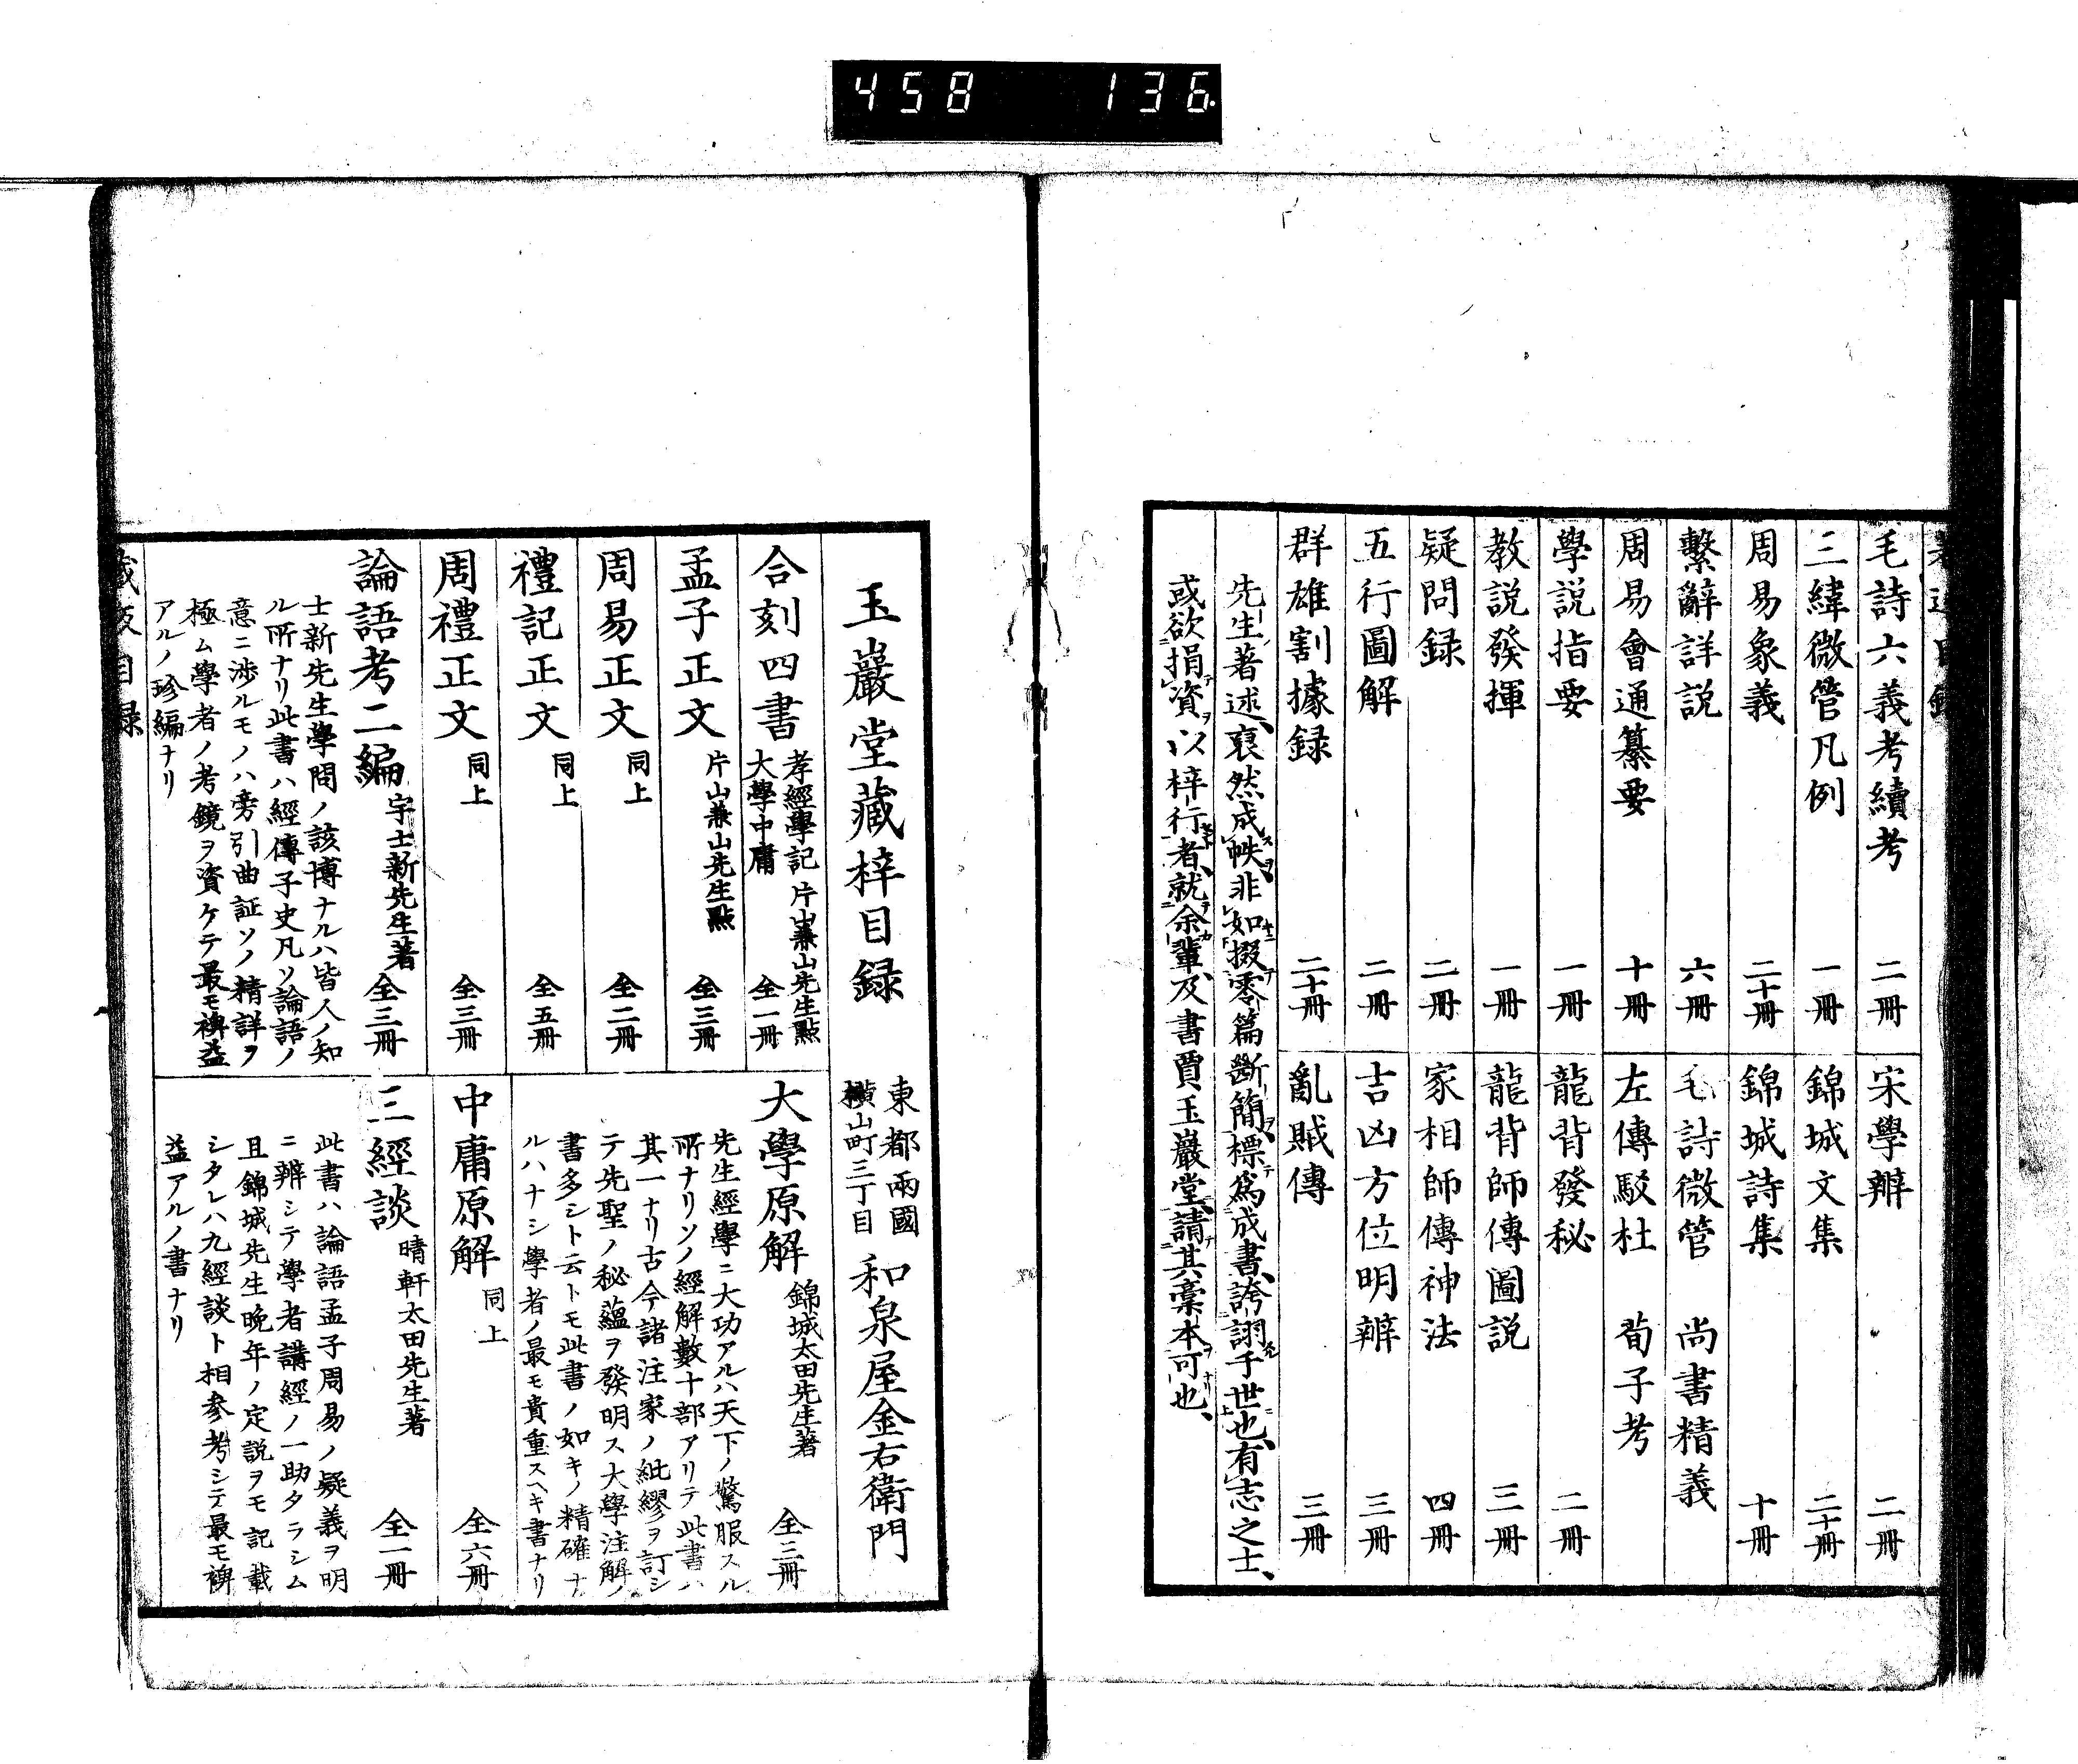 458 136
毛詩六義考續考 二冊
三緯微管凡例 一冊
周易象義 二十冊
繫辭詳説 六冊
周易會通纂要 十冊
學説指要 一冊
教説發揮 一冊
疑問録 二冊
五行圖解 二冊
群雄割據録 二十冊
宋學辨 二冊
錦城文集 二十冊
錦城詩集 十冊
毛詩微管 尚書精義
左傳駁杜 荀子考
龍背發秘 二冊
龍背師傳圖説 三冊
家相師傳神法 四冊
吉凶方位明辨 三冊
亂賊傳 三冊
先生著述、裒然成帙、非如掇零篇斷簡、標爲成書、誇詡于世也、有志之士、
或欲捐資以梓行者、就余輩及書賈玉巖堂、請其稾本可也、
玉巖堂藏梓目録
東都兩國
横山町三丁目
和泉屋金右衛門
合刻四書 孝經學記
大學中庸 片山兼山先生點 全一冊
孟子正文 片山兼山先生點 全三冊
周易正文 同上 全二冊
禮記正文 同上 全五冊
周禮正文 同上 全三冊
論語考二編 宇士新先生著 全三冊
士新先生學問ノ該博ナルハ皆人ノ知
ル所ナリ此書ハ經傳子史凡ソ論語ノ
意ニ渉ルモノハ旁引曲証ソノ精詳ヲ
極ム學者ノ考鏡ヲ資ケテ最モ裨益
アルノ珍編ナリ
大學原解 錦城太田先生著 全三冊
先生經學ニ大功アルハ天下ノ驚服スル
所ナリソノ經解數十部アリテ此書ハ
其一ナリ古今諸注家ノ紕繆ヲ訂シ
テ先聖ノ秘蘊ヲ發明ス大學注解ノ
書多シト云トモ此書ノ如キノ精確ナ
ルハナシ學者ノ最モ貴重スヘキ書ナリ
中庸原解 同上 全六冊
三經談 晴軒太田先生著 全一冊
此書ハ論語孟子周易ノ疑義ヲ明
ニ辨シテ學者講經ノ一助タラシム
且錦城先生晩年ノ定説ヲモ記載
シタレハ九經談ト相参考シテ最モ裨
益アルノ書ナリ